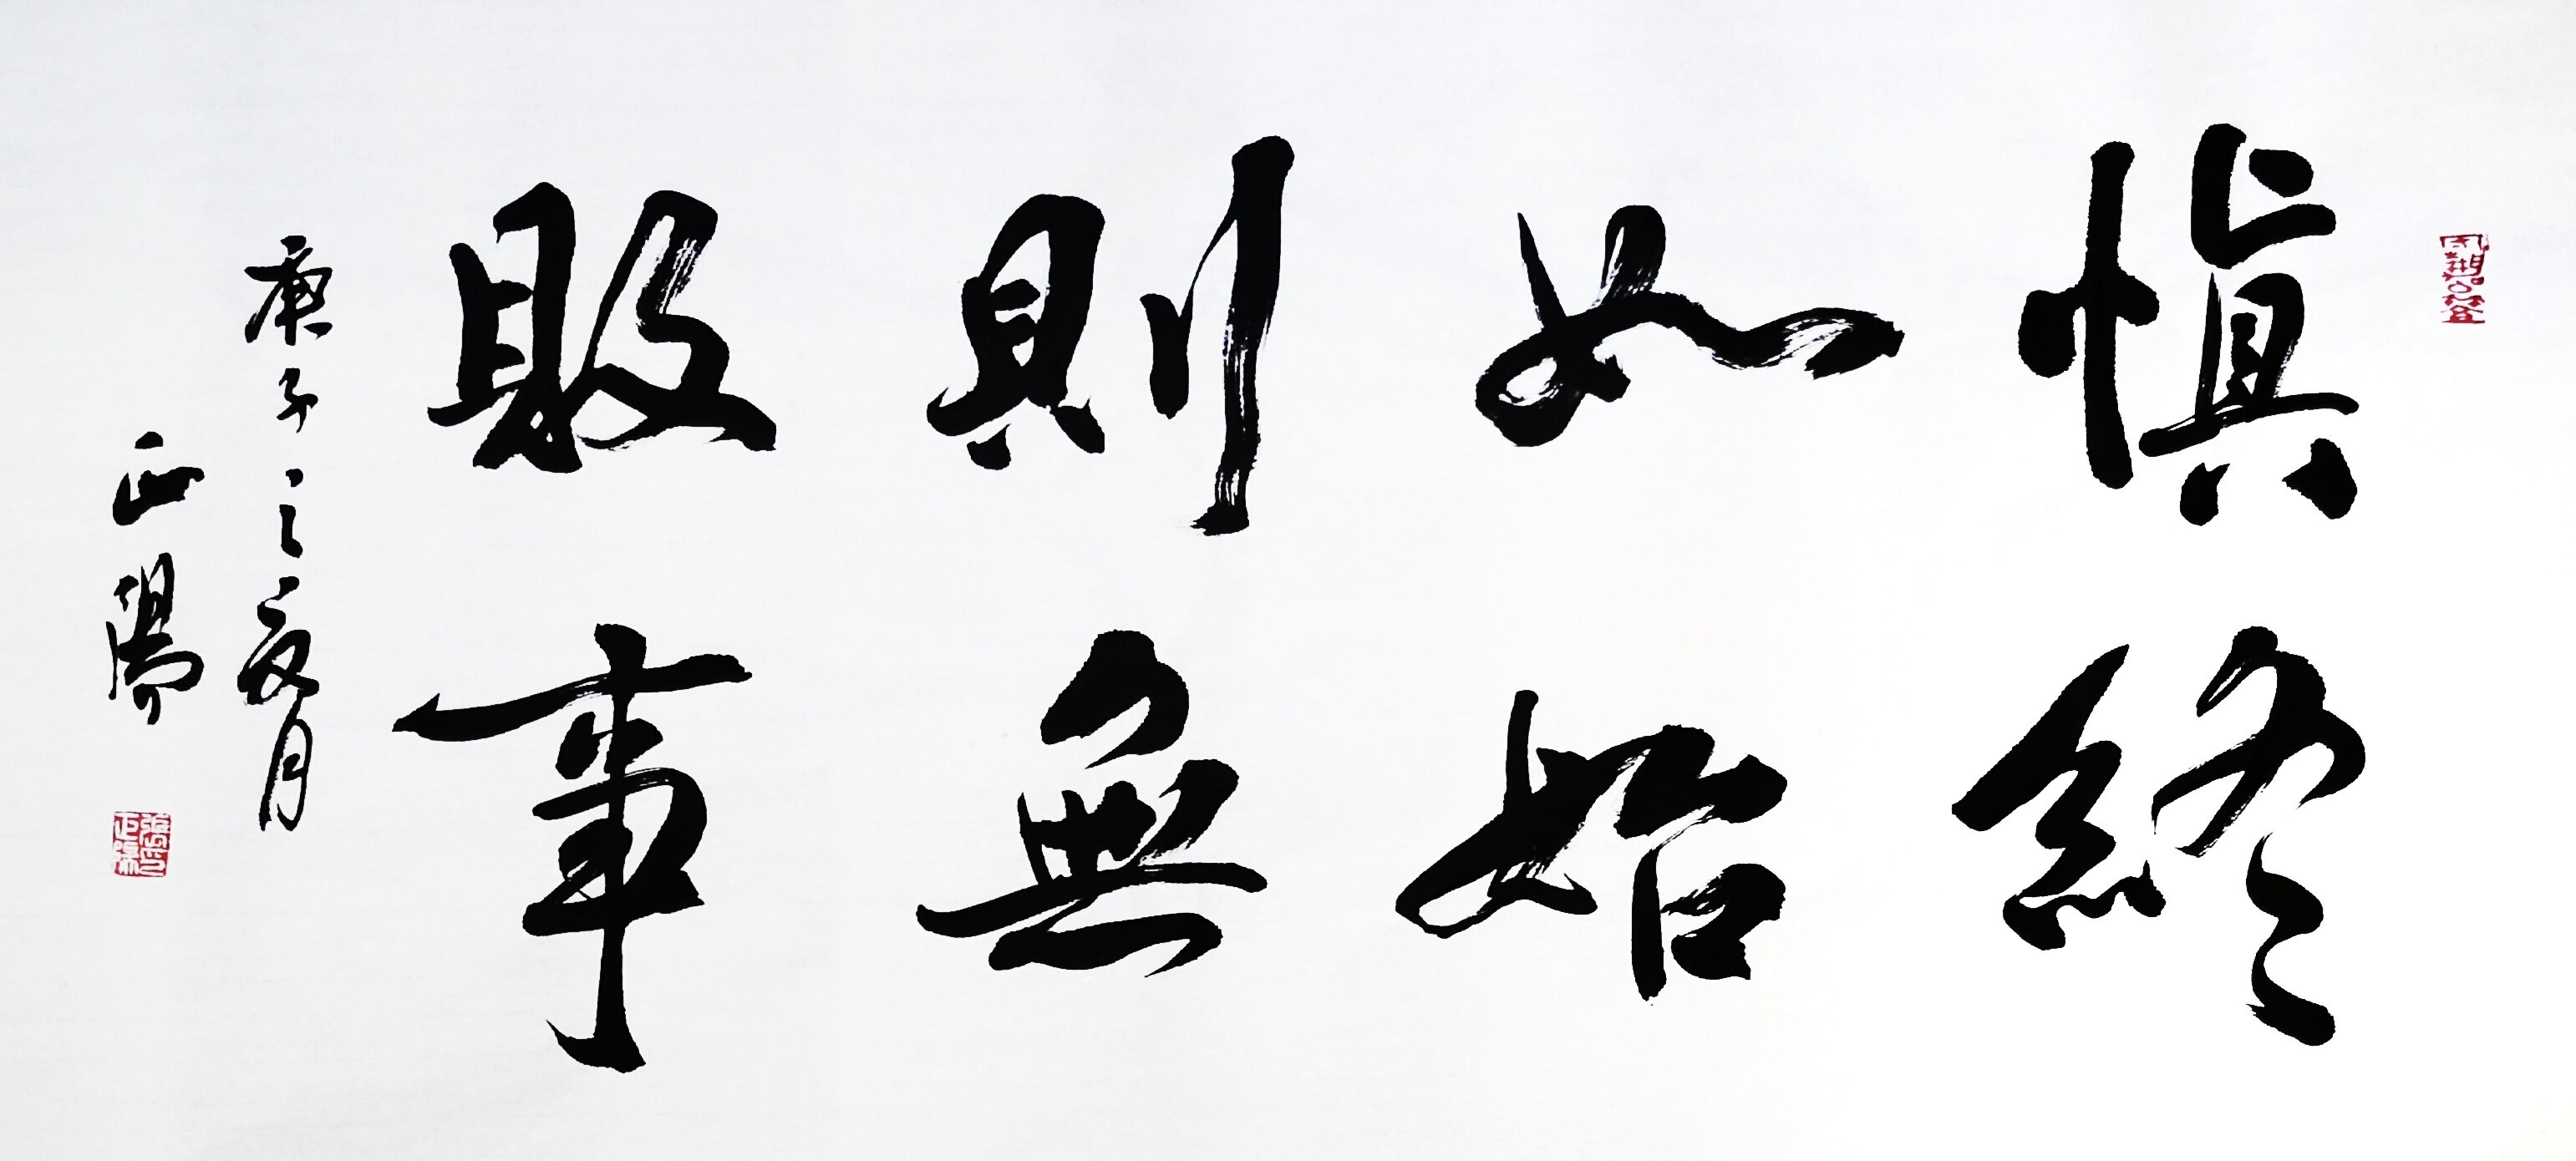 慎終
如始
則無
敗事
庚子之夏月
正陽